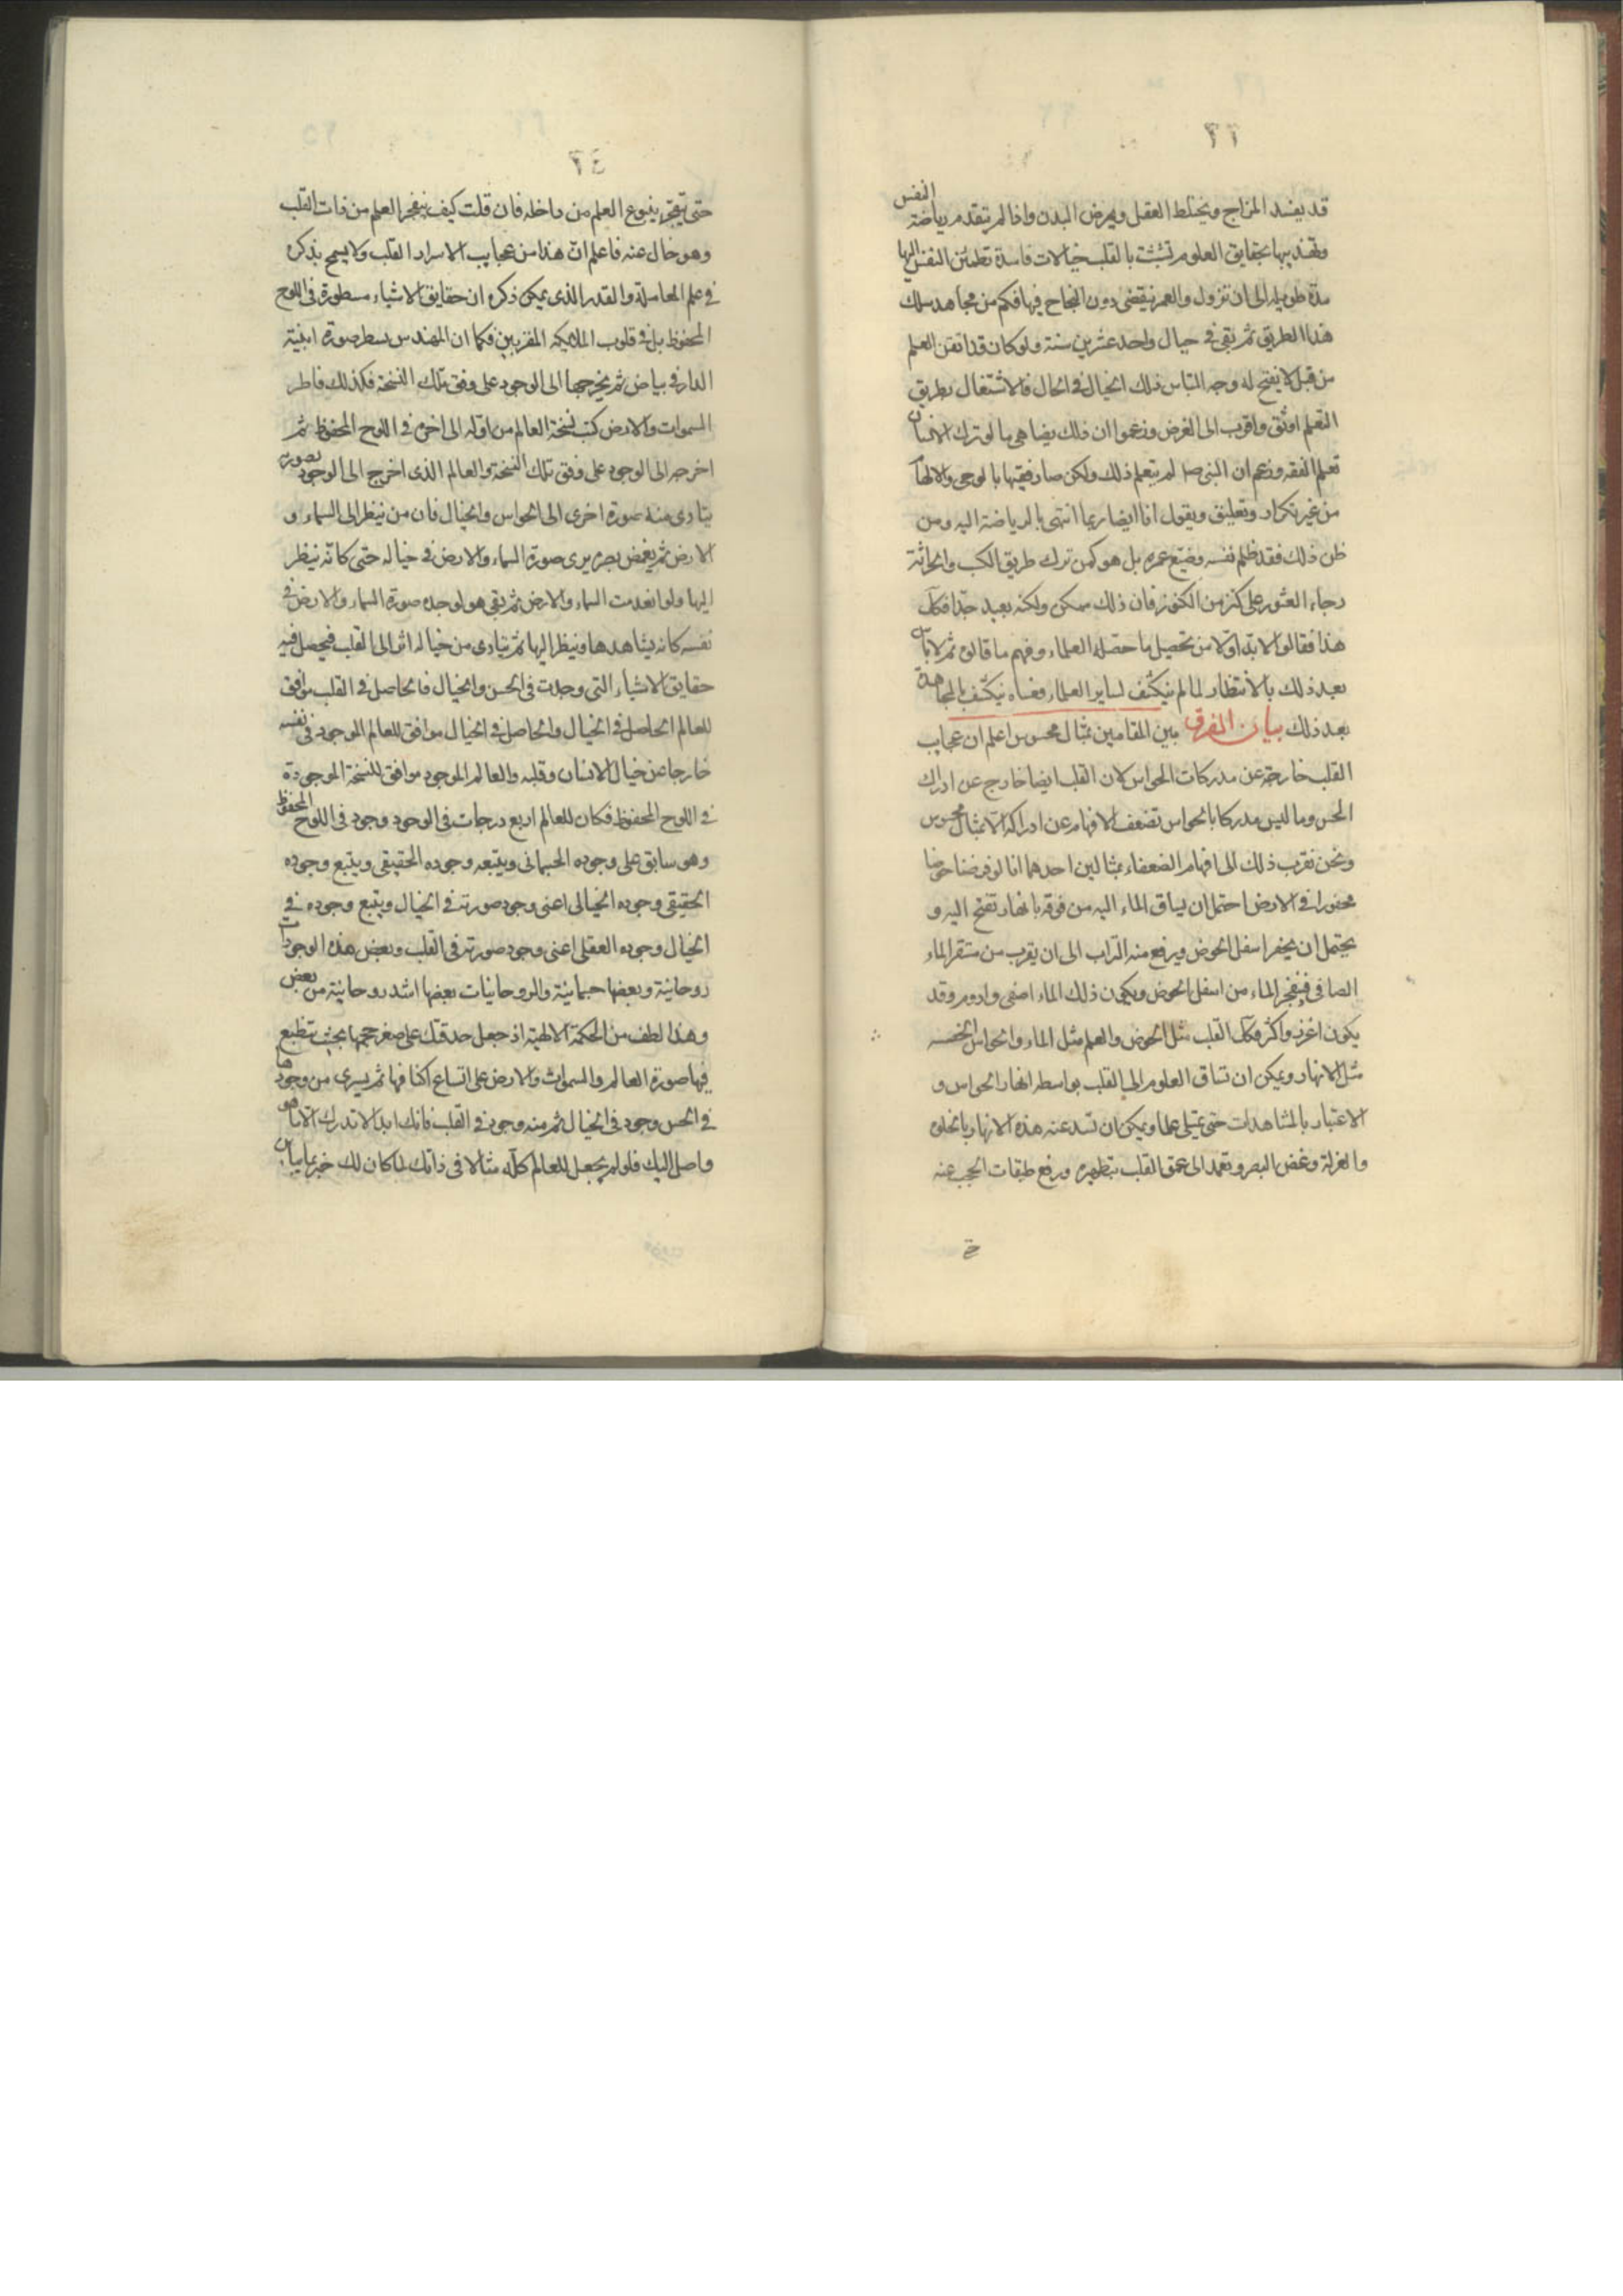 ٢٣
قد يفسد المزاج ويختلط العقل ويمرض البدن واذا لم يتقدم رياضة النفس
وتهذيبها بحقايق العلوم تشبثت بالقلب خيالات فاسدة تطمئن النفس اليها
مدة طويله الى ان تزول والعمر ينقضى دون النجاح فيها فكم من مجاهد سلك
هذا الطريق ثم بقى فى خيال واحد عشرين سنة ولو كان قد اتقن العلم
من قبل لانفتح له وجه التباس ذلك الخيال فى الحال فالاشتغال بطريق
التعلم اوثق واقرب الى الغرض وزعموا ان ذلك يضاهى ما لو ترك الانسان
تعلم الفقه وزعم ان النبى ص لم يتعلم ذلك ولكن صار فقيها بالوحى والالهام
من غير تكرار وتعليق ويقول انا ايضا ربما انتهى بالرياضة اليه ومن
ظن ذلك فقد ظلم نفسه وضيع عمره بل هو كمن ترك طريق الكسب والحراثة
رجاء العثور على كنز من الكنوز فان ذلك ممكن ولكنه بعيد جدا فكذلك
هذا فقالوا لابد اولا من تحصيل ما حصله العلماء وفهم ما قالوه ثم لا باس
بعد ذلك بالانتظار لما لم ينكشف لساير العلماء فعساه ينكشف بالمجاهدة
بعد ذلك بيان الفرق بين المقامين بمثال محسوس اعلم ان عجايب
القلب خارجة عن مدركات الحواس لان القلب ايضا خارج عن ادراك
الحس وما ليس مدركا بالحواس تضعف الافهام عن ادراكه الا بمثال محسوس
ونحن نقرب ذلك الى افهام الضعفاء بمثالين احدهما انا لو فرضنا حوضا
محفورا فى الارض احتمل ان يساق الماء اليه من فوقه بانهار تفتح اليه و
يحتمل ان يحفر اسفل الحوض ويرفع منه التراب الى ان يقرب من مستقر الماء
الصافى فينفجر الماء من اسفل الحوض ويكون ذلك الماء اصفى وادوم وقد
يكون اغزر واكثر فكان القلب مثل الحوض والعلم مثل الماء والحواس الخمسه
مثل الانهار ويمكن ان تساق العلوم الى القلب بواسطه انهار الحواس و
الاعتبار بالمشاهدات حتى يمتلى علما ويمكن ان تسد عنه هذه الانهار بالخلوه
والعزلة وغض البصر وتعمد الى عمق القلب بتطهيره ورفع طبقات الحجب عنه
٢٤
حتى يتفجر ينبوع العلم من داخله فان قلت كيف ينفجر العلم من ذات القلب
وهو خال عنه فاعلم ان هذا من عجايب الاسرار القلب ولا يسمح بذكره
فى علم المعاملة والقدر الذى يمكن ذكره ان حقايق الاشياء مسطورة فى اللوح
المحفوظ بل فى قلوب الملايكه المقربين فكما ان المهندس يسطر صورة ابنية
الدار فى بياض ثم يخرجها الى الوجود على وفق تلك النسخة فكذلك فاطر
السموات والارض كتب نسخة العالم من اوله الى اخره فى اللوح المحفوظ ثم
اخرجه الى الوجود على وفق تلك النسخة والعالم الذى اخرج الى الوجود بصورته
يتادى منه صورة اخرى الى الحواس والخيال فان من ينظر الى السماء و
الارض ثم يغمض بصره يرى صورة السماء والارض فى خياله حتى كانه ينظر
اليها ولو انعدمت السماء والارض ثم بقى هو لوجده صورة السماء والارض فى
نفسه كانه يشاهدها وينظر اليها ثم يتادى من خياله اثر الى القلب فيحصل فيه
حقايق الاشياء التى وجدت فى الحس والخيال فالحاصل فى القلب موافق
للعالم الحاصل فى الخيال والحاصل فى الخيال موافق للعالم الموجود فى نفسه
خارجا عن خيال الانسان وقلبه والعالم الموجود موافق للنسخة الموجودة
فى اللوح المحفوظ فكان للعالم اربع درجات فى الوجود وجود فى اللوح المحفوظ
وهو سابق على وجوده الجسمانى ويتبعه وجوده الحقيقى ويتبع وجوده
الحقيقى وجوده الخيالى اعنى وجود صورته فى الخيال ويتبع وجوده فى
الخيال وجوده العقلى اعنى وجود صورته فى القلب وبعض هذه الوجودات
روحانية وبعضها جسمانية والروحانيات بعضها اشد روحانية من بعض
وهذا لطف من الحكمة الالهية اذ جعل حدقتك على صغر حجمها بحيث تنطبع
فيها صورة العالم والسموات والارض على اتساع اكنافها ثم يسرى من وجودها
فى الحس وجود فى الخيال ثم منه وجود فى القلب فانك ابدا لا تدرك الا ما هو
واصل اليك فلو لم يجعل للعالم كله مثالا فى ذاتك لما كان لك خبر بما يباين